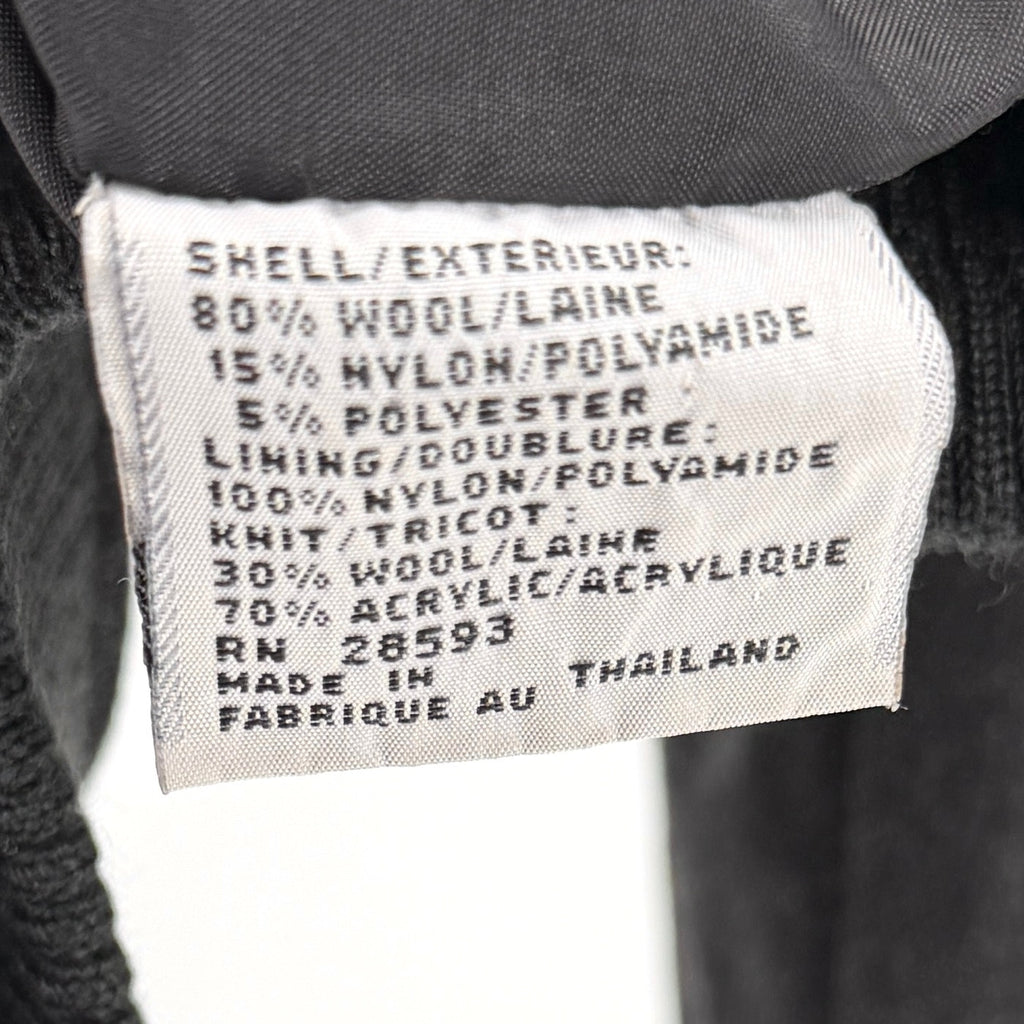 SHELL/EXTERIEUR:
80% WOOL/LAINE
15% NYLON/POLYAMIDE
5% POLYESTER
LINING/DOUBLURE:
100% NYLON/POLYAMIDE
KNIT/TRICOT:
30% WOOL/LAINE
70% ACRYLIC/ACRYLIQUE
RN 28593
MADE IN
FABRIQUE AU THAILAND